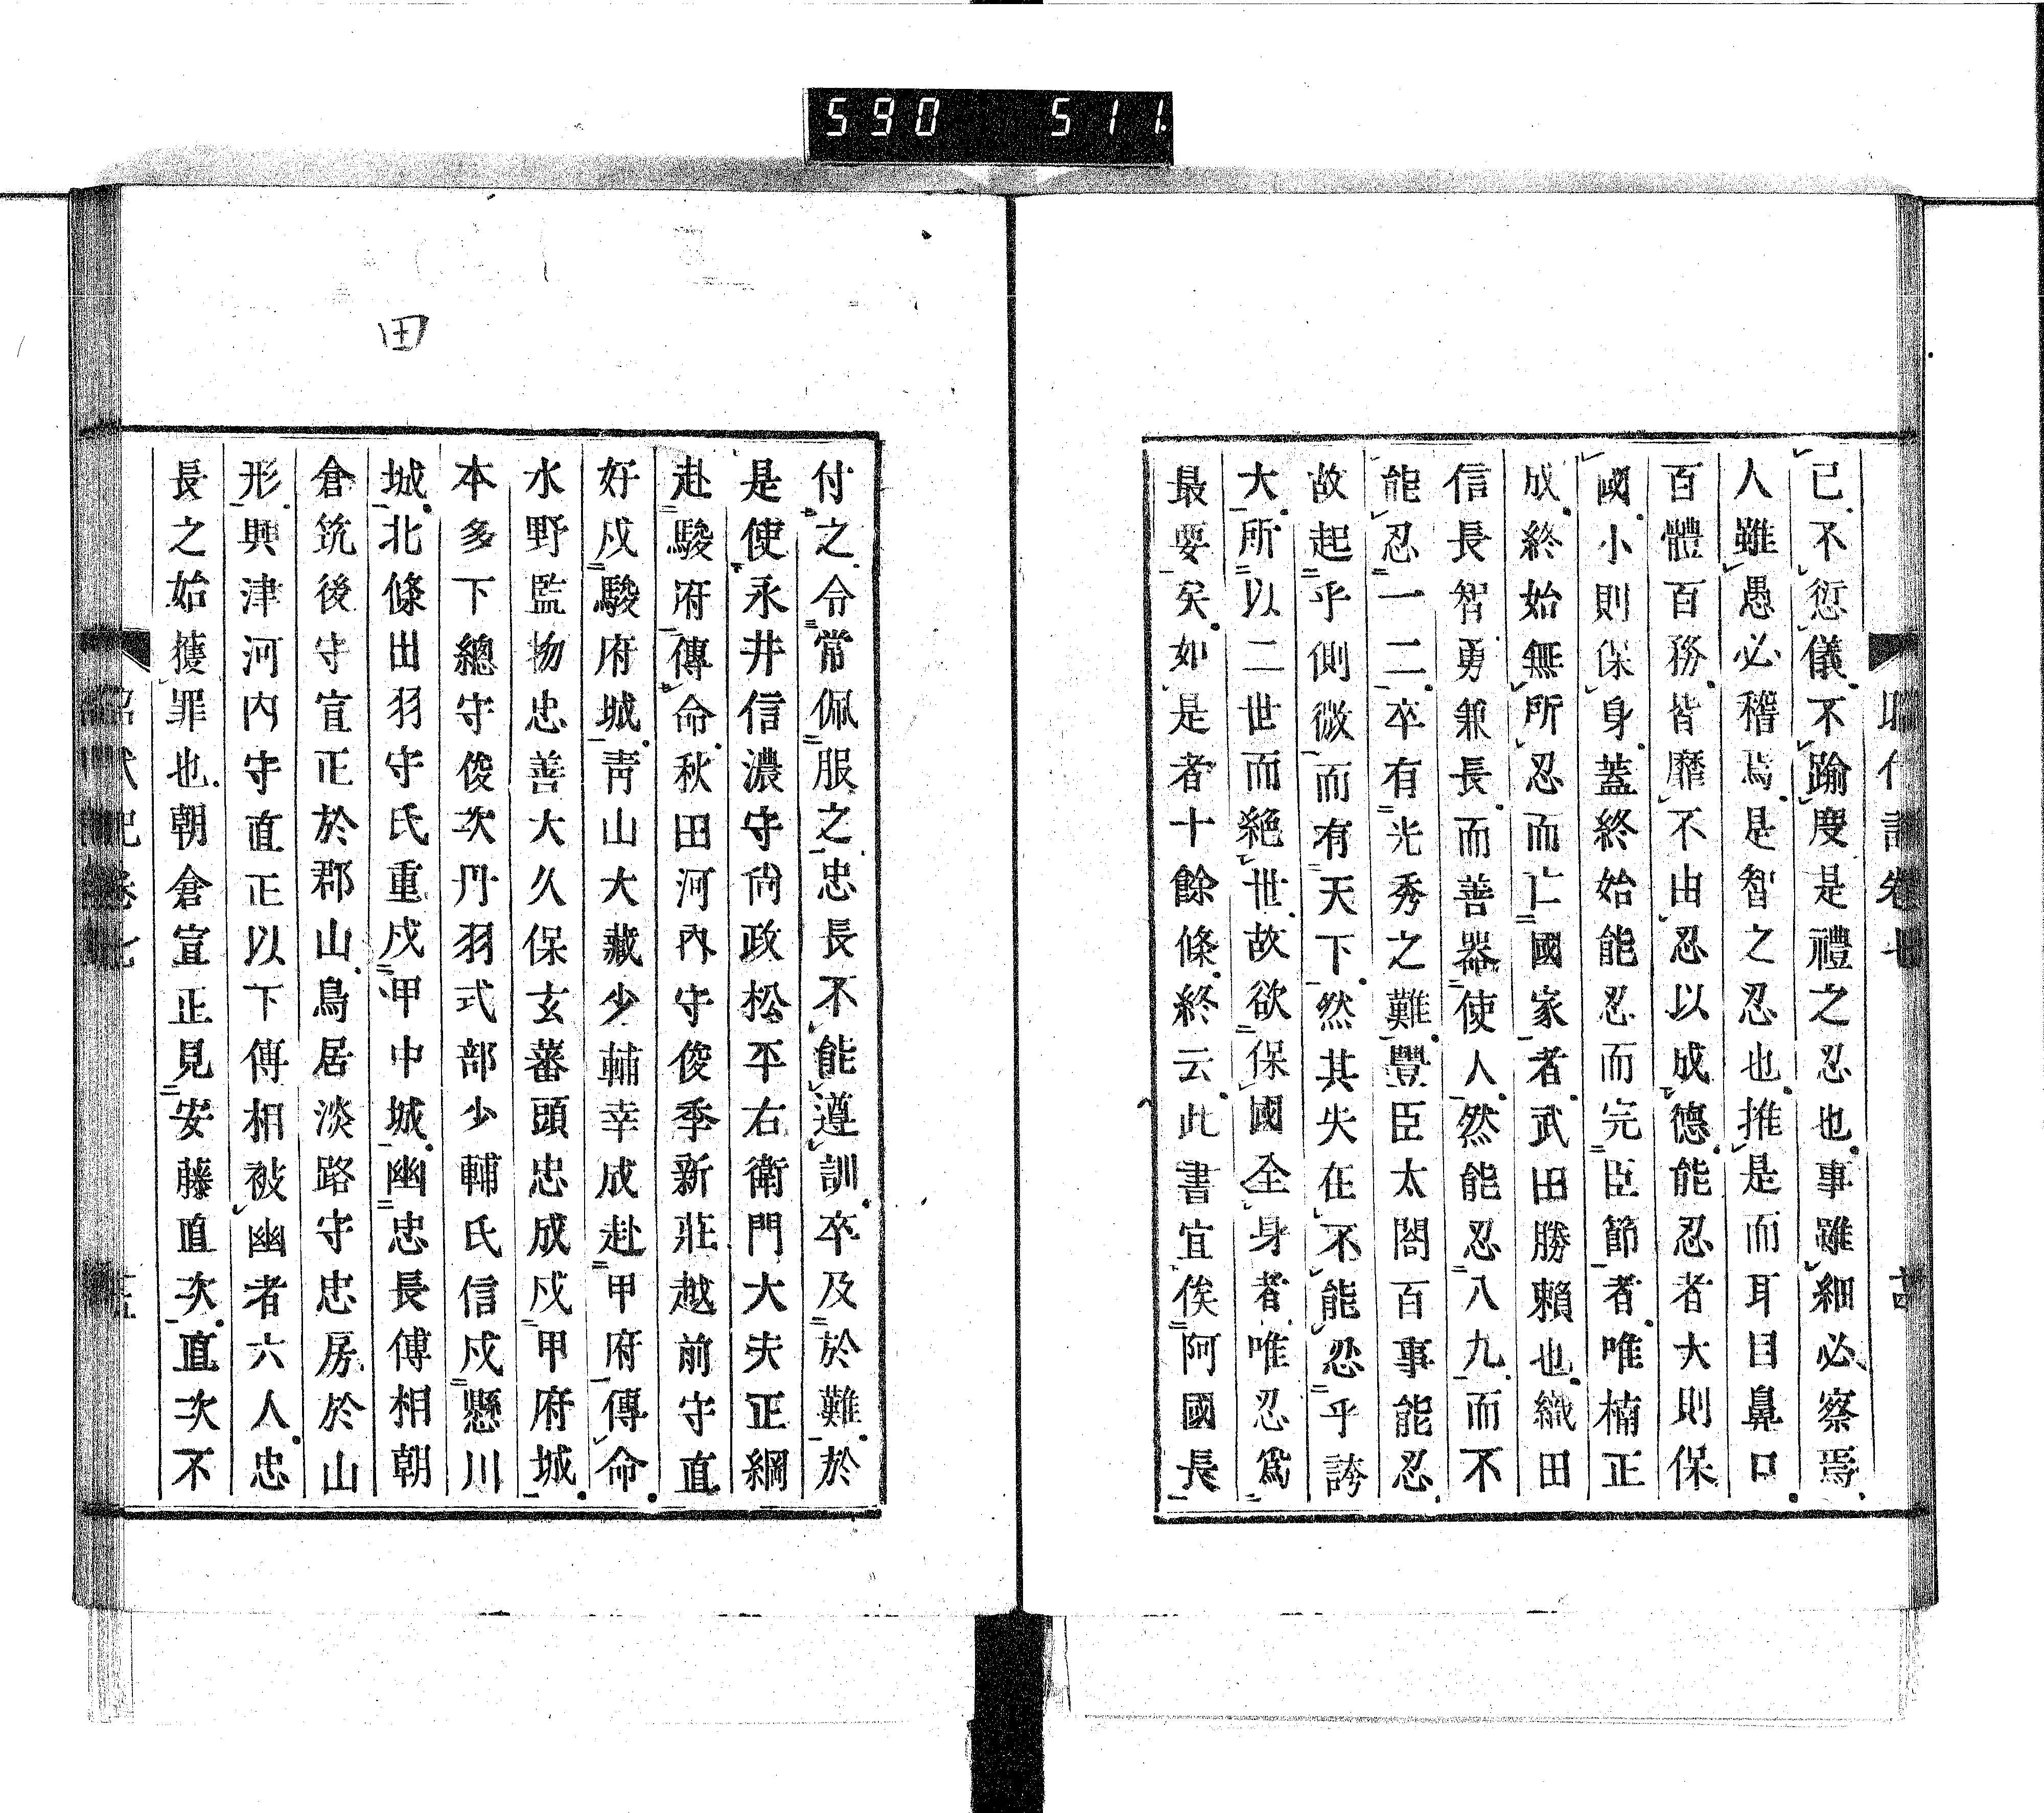 590 511
已不愆儀不踰度是禮之忍也事雖細必察焉
人雖愚必稽焉是智之忍也推是而耳目鼻口
百體百務皆靡不由忍以成德能忍者大則保
國小則保身蓋終始能忍而完臣節者唯楠正
成終始無所忍而亡國家者武田勝賴也織田
信長智勇兼長而善器使人然能忍八九而不
能忍一二卒有光秀之難豐臣太閤百事能忍
故起乎側微而有天下然其失在不能忍乎誇
大所以二世而絕世故欲保國全身者唯忍爲
最要矣如是者十餘條終云此書宜俟阿國長
田
付之令常佩服之忠長不能遵訓卒及於難於
是使永井信濃守尚政松平右衛門大夫正綱
赴駿府傳命秋田河內守俊季新莊越前守直
好戍駿府城靑山大藏少輔幸成赴甲府傳命
水野監物忠善大久保玄蕃頭忠成戍甲府城
本多下總守俊次丹羽式部少輔氏信戍懸川
城北條出羽守氏重戍甲中城幽忠長傅相朝
倉筑後守宣正於郡山鳥居淡路守忠房於山
形興津河內守直正以下傅相被幽者六人忠
長之始獲罪也朝倉宣正見安藤直次直次不